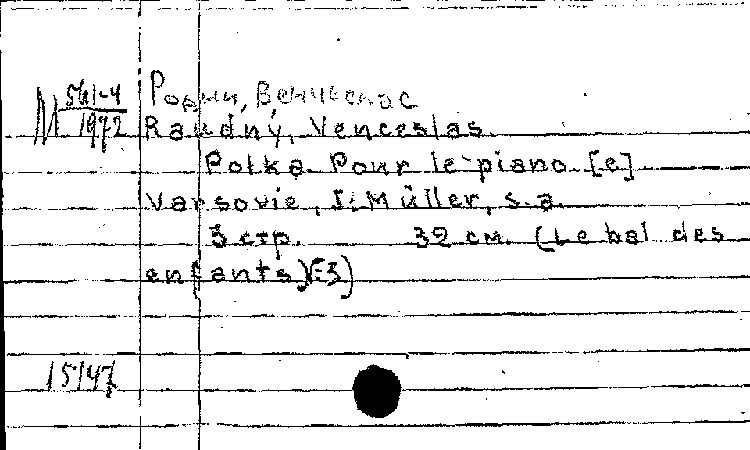 М 561-4
1972
Родни, Венчеслас
Raudný, Venceslas.
Polka. Pour le piano. [e]
Varsovie, J. Müller, s.a.
3 стр. 32 см. (Le bal des
enfants) (-3)
15147